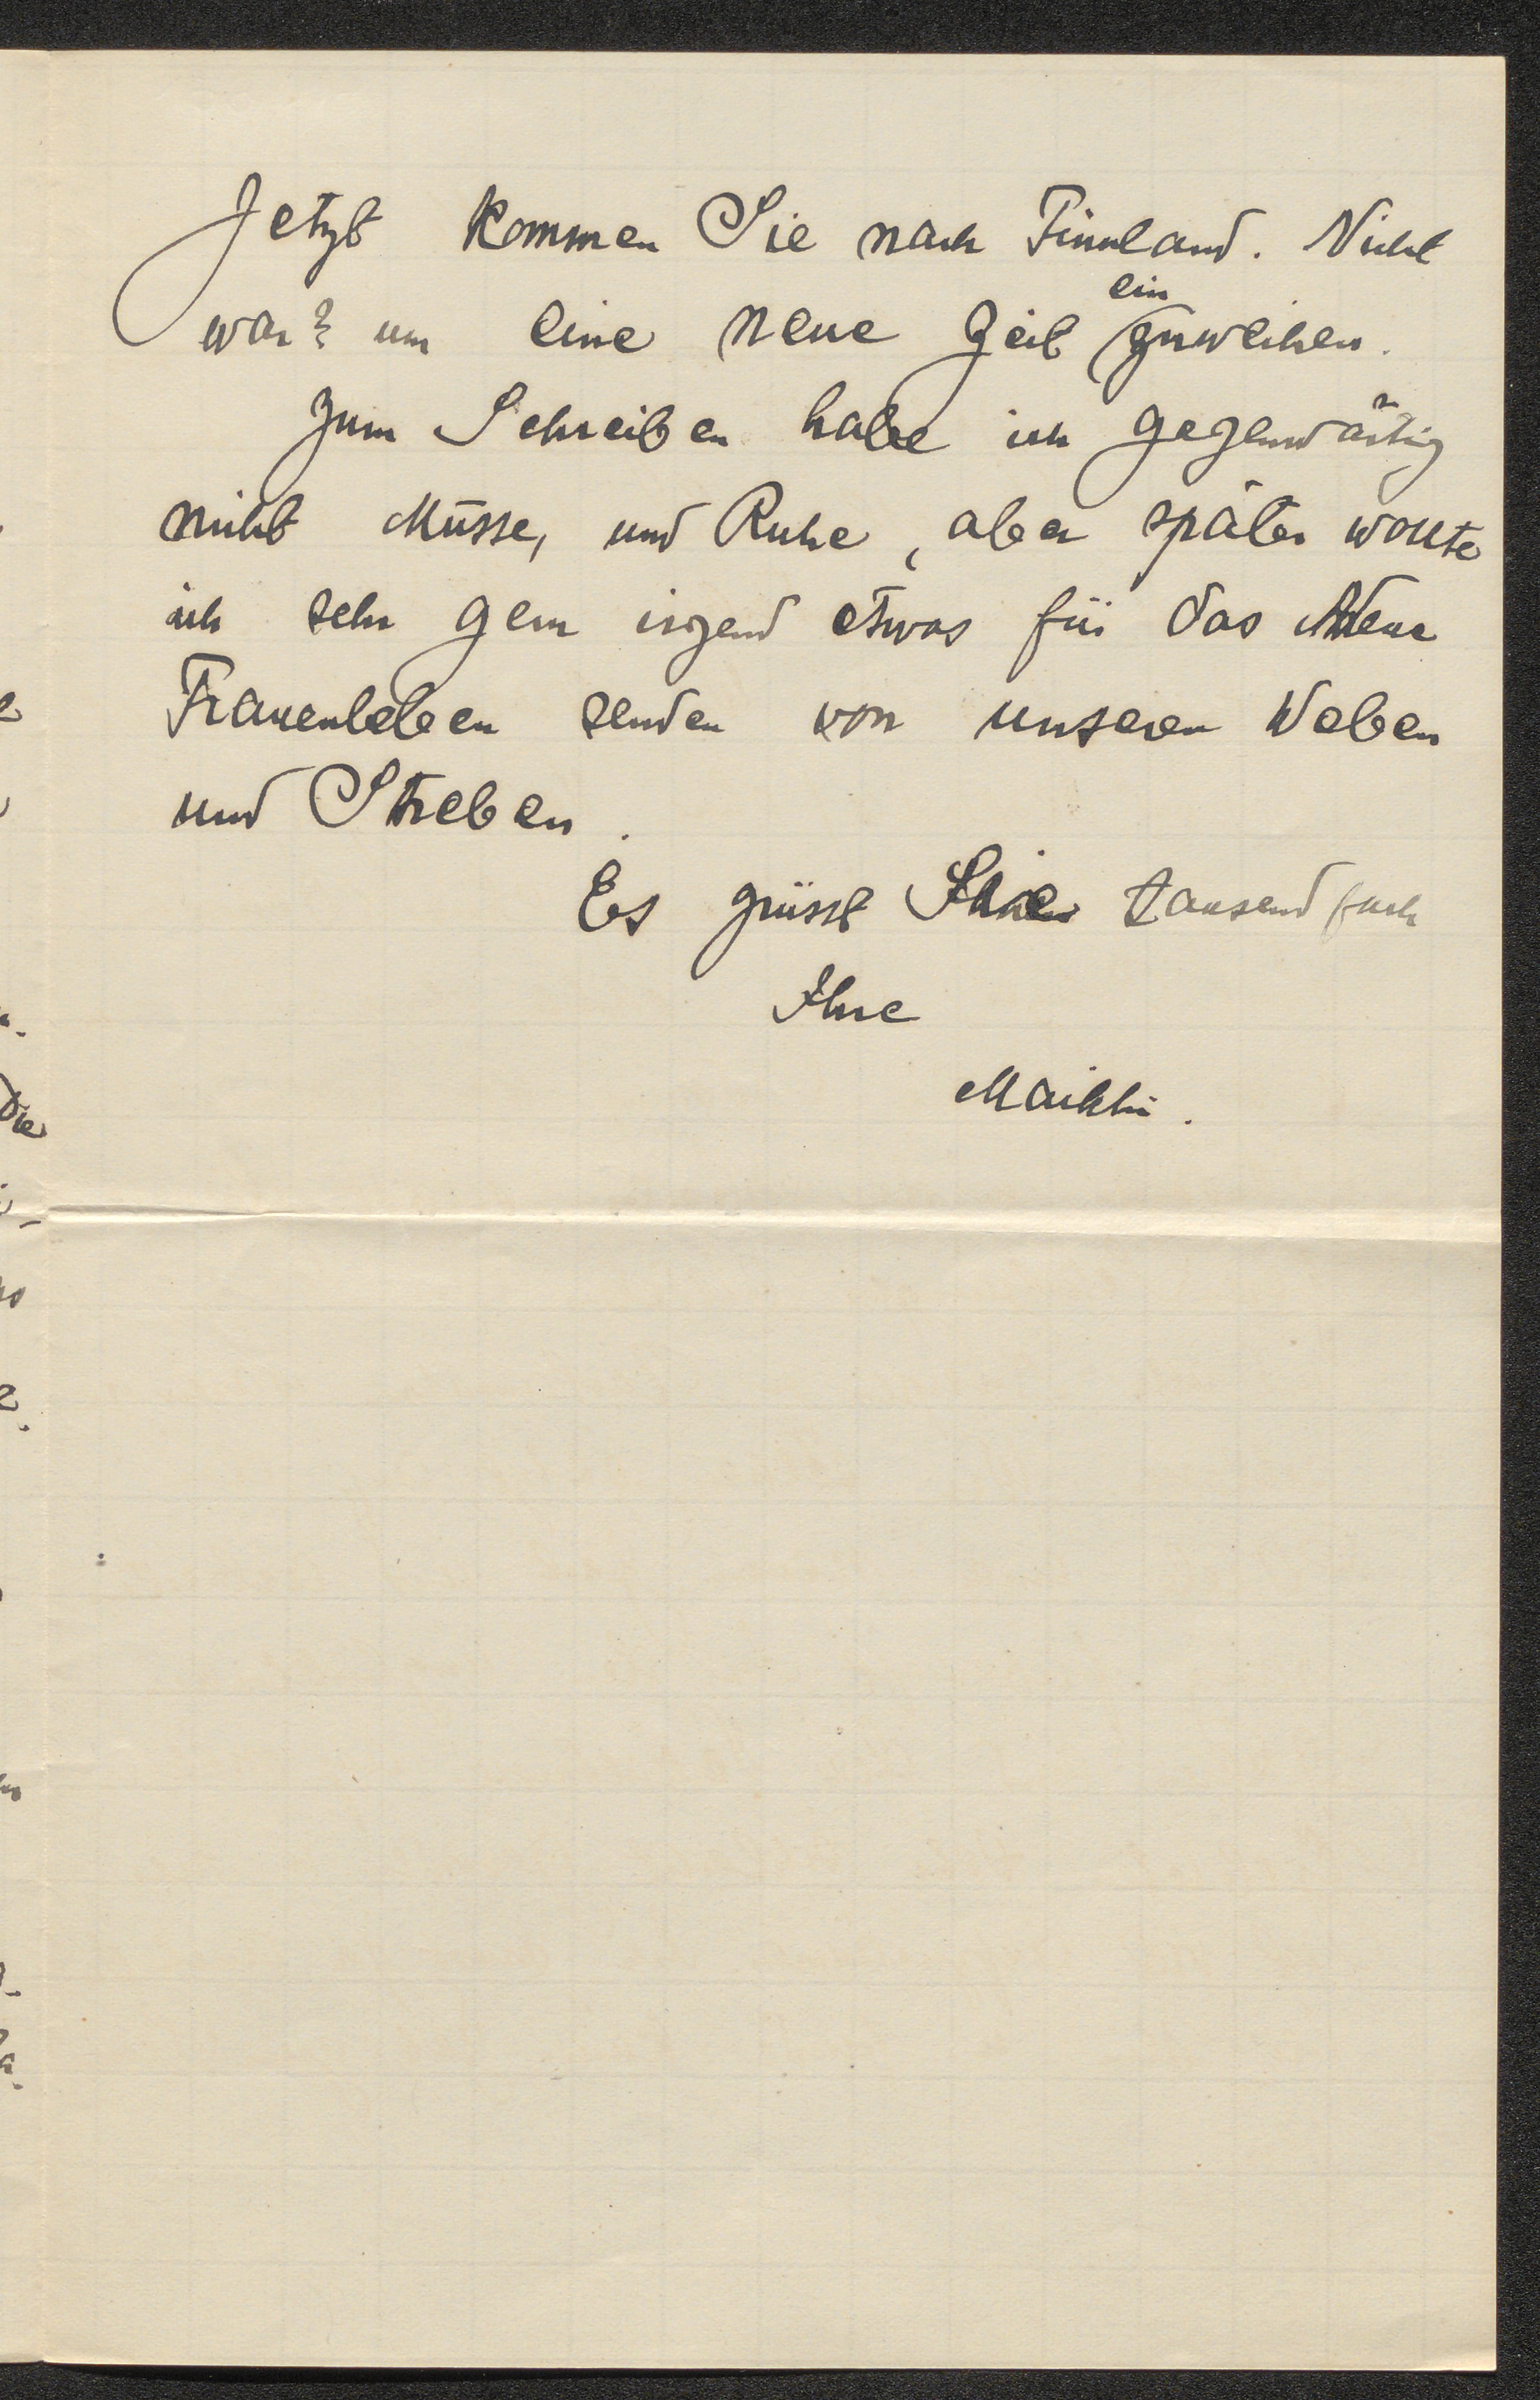 Jetzt kommen Sie nach Finnland. Nicht
war? um eine neue Zeit einzuweihen.
Zum Schreiben habe ich gegenwärtig
nicht Müsse, und Ruhe, aber später wollte
ich sehr gern irgend etwas für das Neue
Frauenleben senden von unseren Weben
und Streben.
Es grüsst Sie tausendfach
Ihre
Maikki.